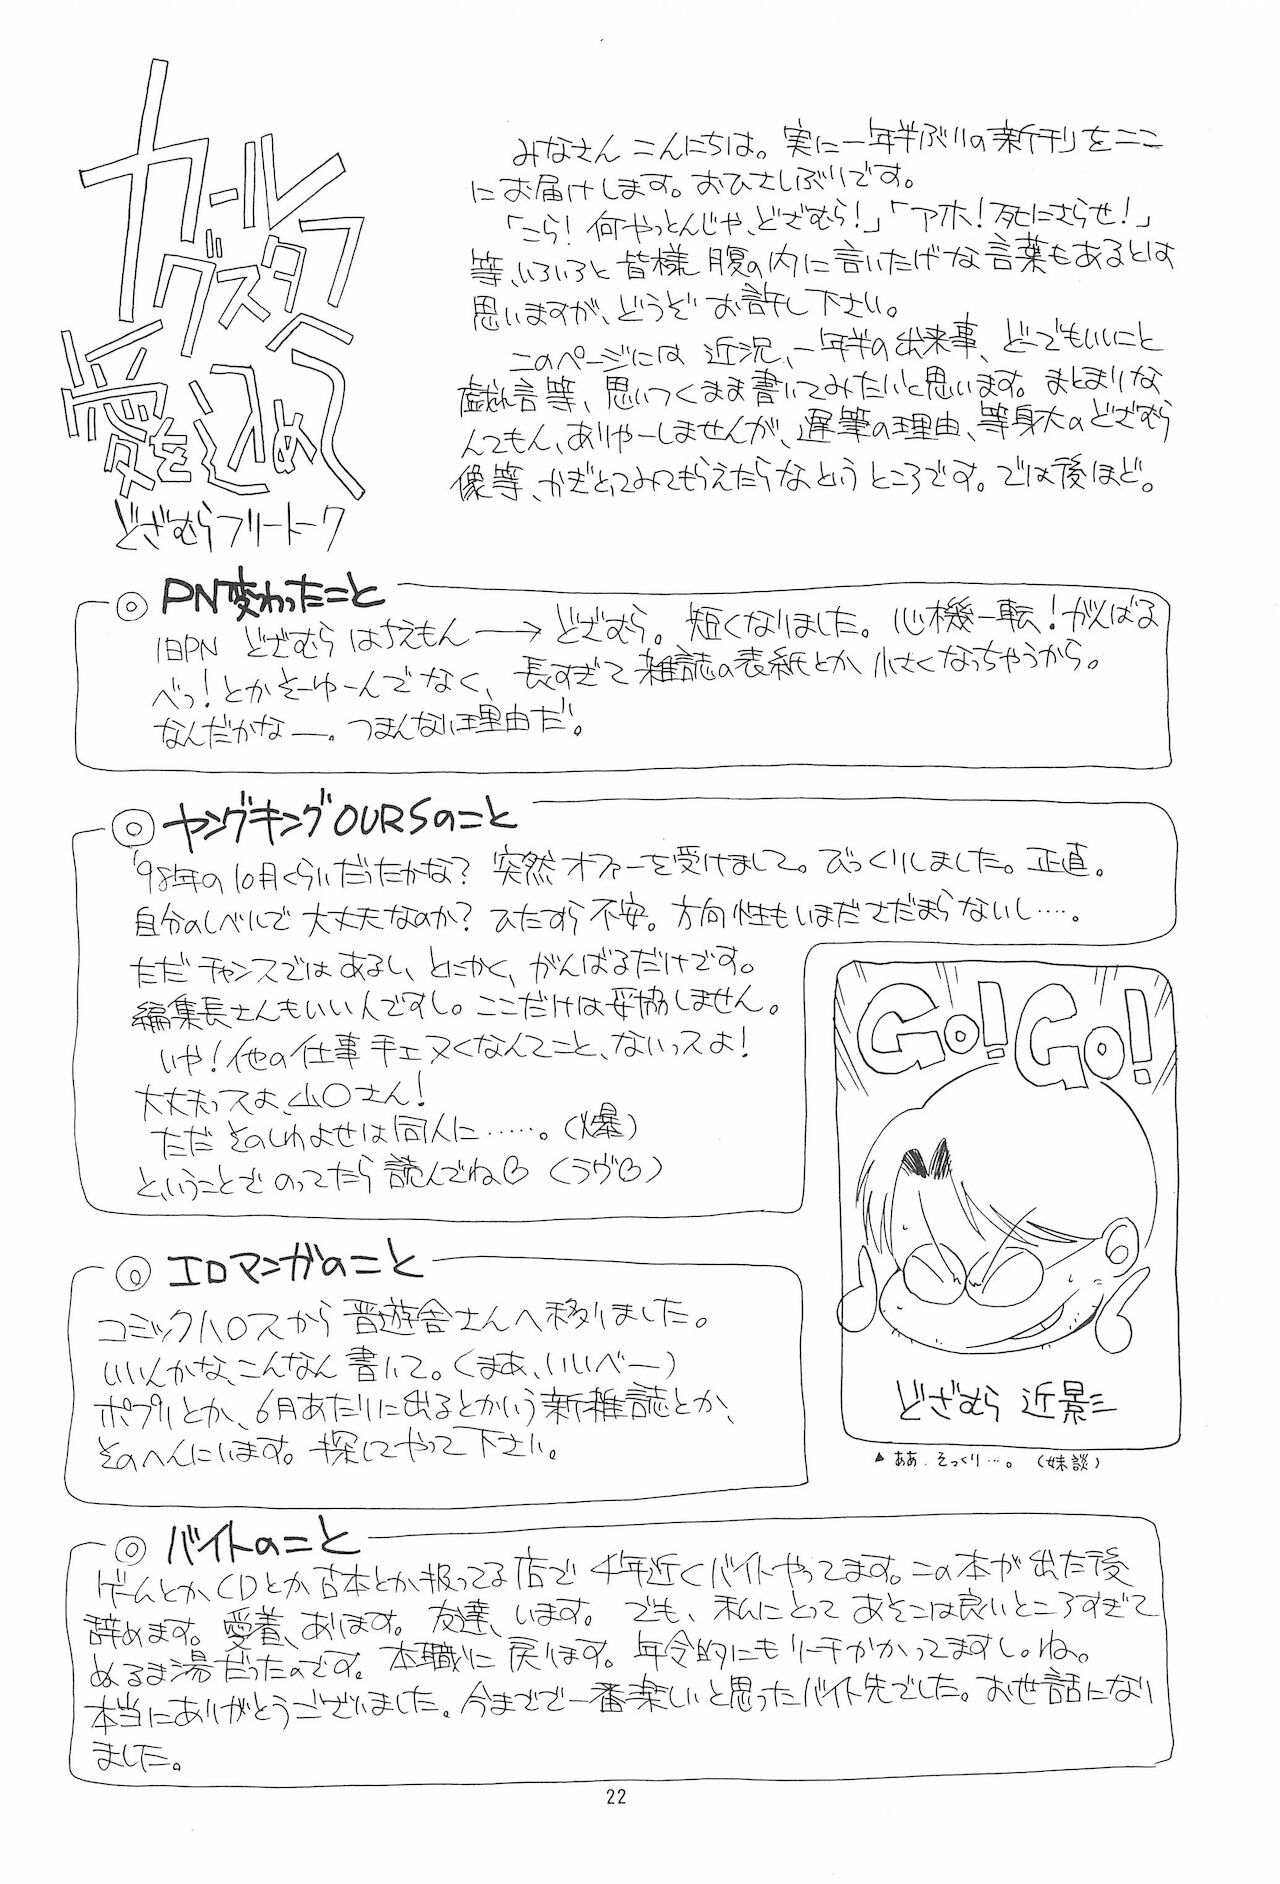 カール
グスタフへ
愛を込めて
どざむらフリートーク
みなさん こんにちは。実に一年半ぶりの新刊をここ
にお届けします。おひさしぶりです。
「こら！何やっとんじゃ、どざむら！」「アホ！死にさらせ！」
等、いろいろと皆様 腹の内に言いたげな言葉もあるとは
思いますが、どうぞお許し下さい。
このページには 近況、一年半の出来事、どーでもいいこと
戯れ言等、思いつくまま書いてみたいと思います。まとまりな
んてもん、ありゃーしませんが、遅筆の理由、等身大のどざむら
像等、かぎとってみてもらえたらなというところです。では後ほど。
◎ PN変わったこと
旧PN どざむら はちえもん ―→ どざむら。短くなりました。心機一転！がんばる
べっ！とかそーゆーんでなく、長すぎて雑誌の表紙とか小さくなっちゃうから。
なんだかなー。つまんない理由だ。
◎ ヤングキングOURSのこと
'98年の10月くらいだったかな？ 突然オファーを受けまして。びっくりしました。正直。
自分のレベルで大丈夫なのか？ひたすら不安。方向性もいまださだまらないし…。
ただ チャンスではあるし、とにかく、がんばるだけです。
編集長さんもいい人ですし。ここだけは妥協しません。
いや！他の仕事 手エヌくなんてこと、ないっスよ！
大丈夫っスよ、山〇さん！
ただ そのしわよせは同人に……。（爆）
ということで のってたら 読んでね♡ （ラヴ♡）
Go! Go!
どざむら 近影
▲ ああ、そっくり…。（妹談）
◎ エロマンガのこと
コミックハ〇スから 晋遊舎さんへ移りました。
いいんかな、こんなん 書いて。（まあ、いいべー）
ポプリとか、6月あたりに出るとかいう新雑誌とか、
そのへんにいます。探してやって下さい。
◎ バイトのこと
ゲームとかCDとか古本とか扱ってる店で 4年近くバイトやってます。この本が出た後
辞めます。愛着、あります。友達、います。でも、私にとって あそこは良いところすぎて
ぬるま湯だったのです。本職に戻ります。年令的にもリーチかかってますし。ね。
本当にありがとうございました。今までで一番楽しいと思ったバイト先でした。お世話になり
ました。
22